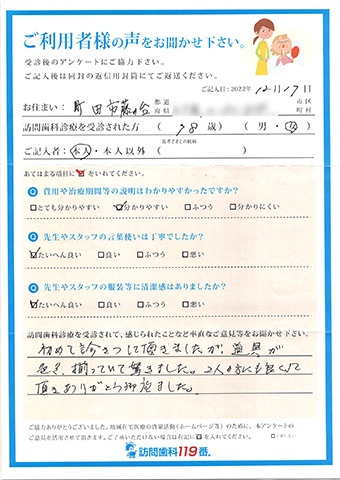 ご利用者様の声をお聞かせ下さい。
受診後のアンケートにご協力下さい。
ご記入後は同封の返信用封筒にてご返送ください。
ご記入日:2022年 12月17日
お住まい: 町田市藤の台 都道府県 市区町村
訪問歯科診療を受診された方 ( 78 歳) ( 男・女 )
ご記入者:( 本人・本人以外 ( 患者さまとの続柄 )
あてはまる項目に☑をいれてください。
Q 費用や治療期間等の説明はわかりやすかったですか?
□とても分かりやすい ☑分かりやすい □ふつう □分かりにくい
Q 先生やスタッフの言葉使いは丁寧でしたか?
☑たいへん良い □良い □ふつう □悪い
Q 先生やスタッフの服装等に清潔感はありましたか?
☑たいへん良い □良い □ふつう □悪い
訪問歯科診療を受診されて、感じられたことなど率直なご意見等をお聞かせ下さい。
初めて診さつして頂きましたが、道具が
揃っていて驚きました。2人の方にも良くして
頂きありがとう御座ました。
ご協力ありがとうございました。地域在宅医療の啓蒙活動(ホームページ等)のために、本アンケートの
ご意見を活用させて頂きます。ご了承いただけない場合は右記に☑を入れてください。
訪問歯科119番